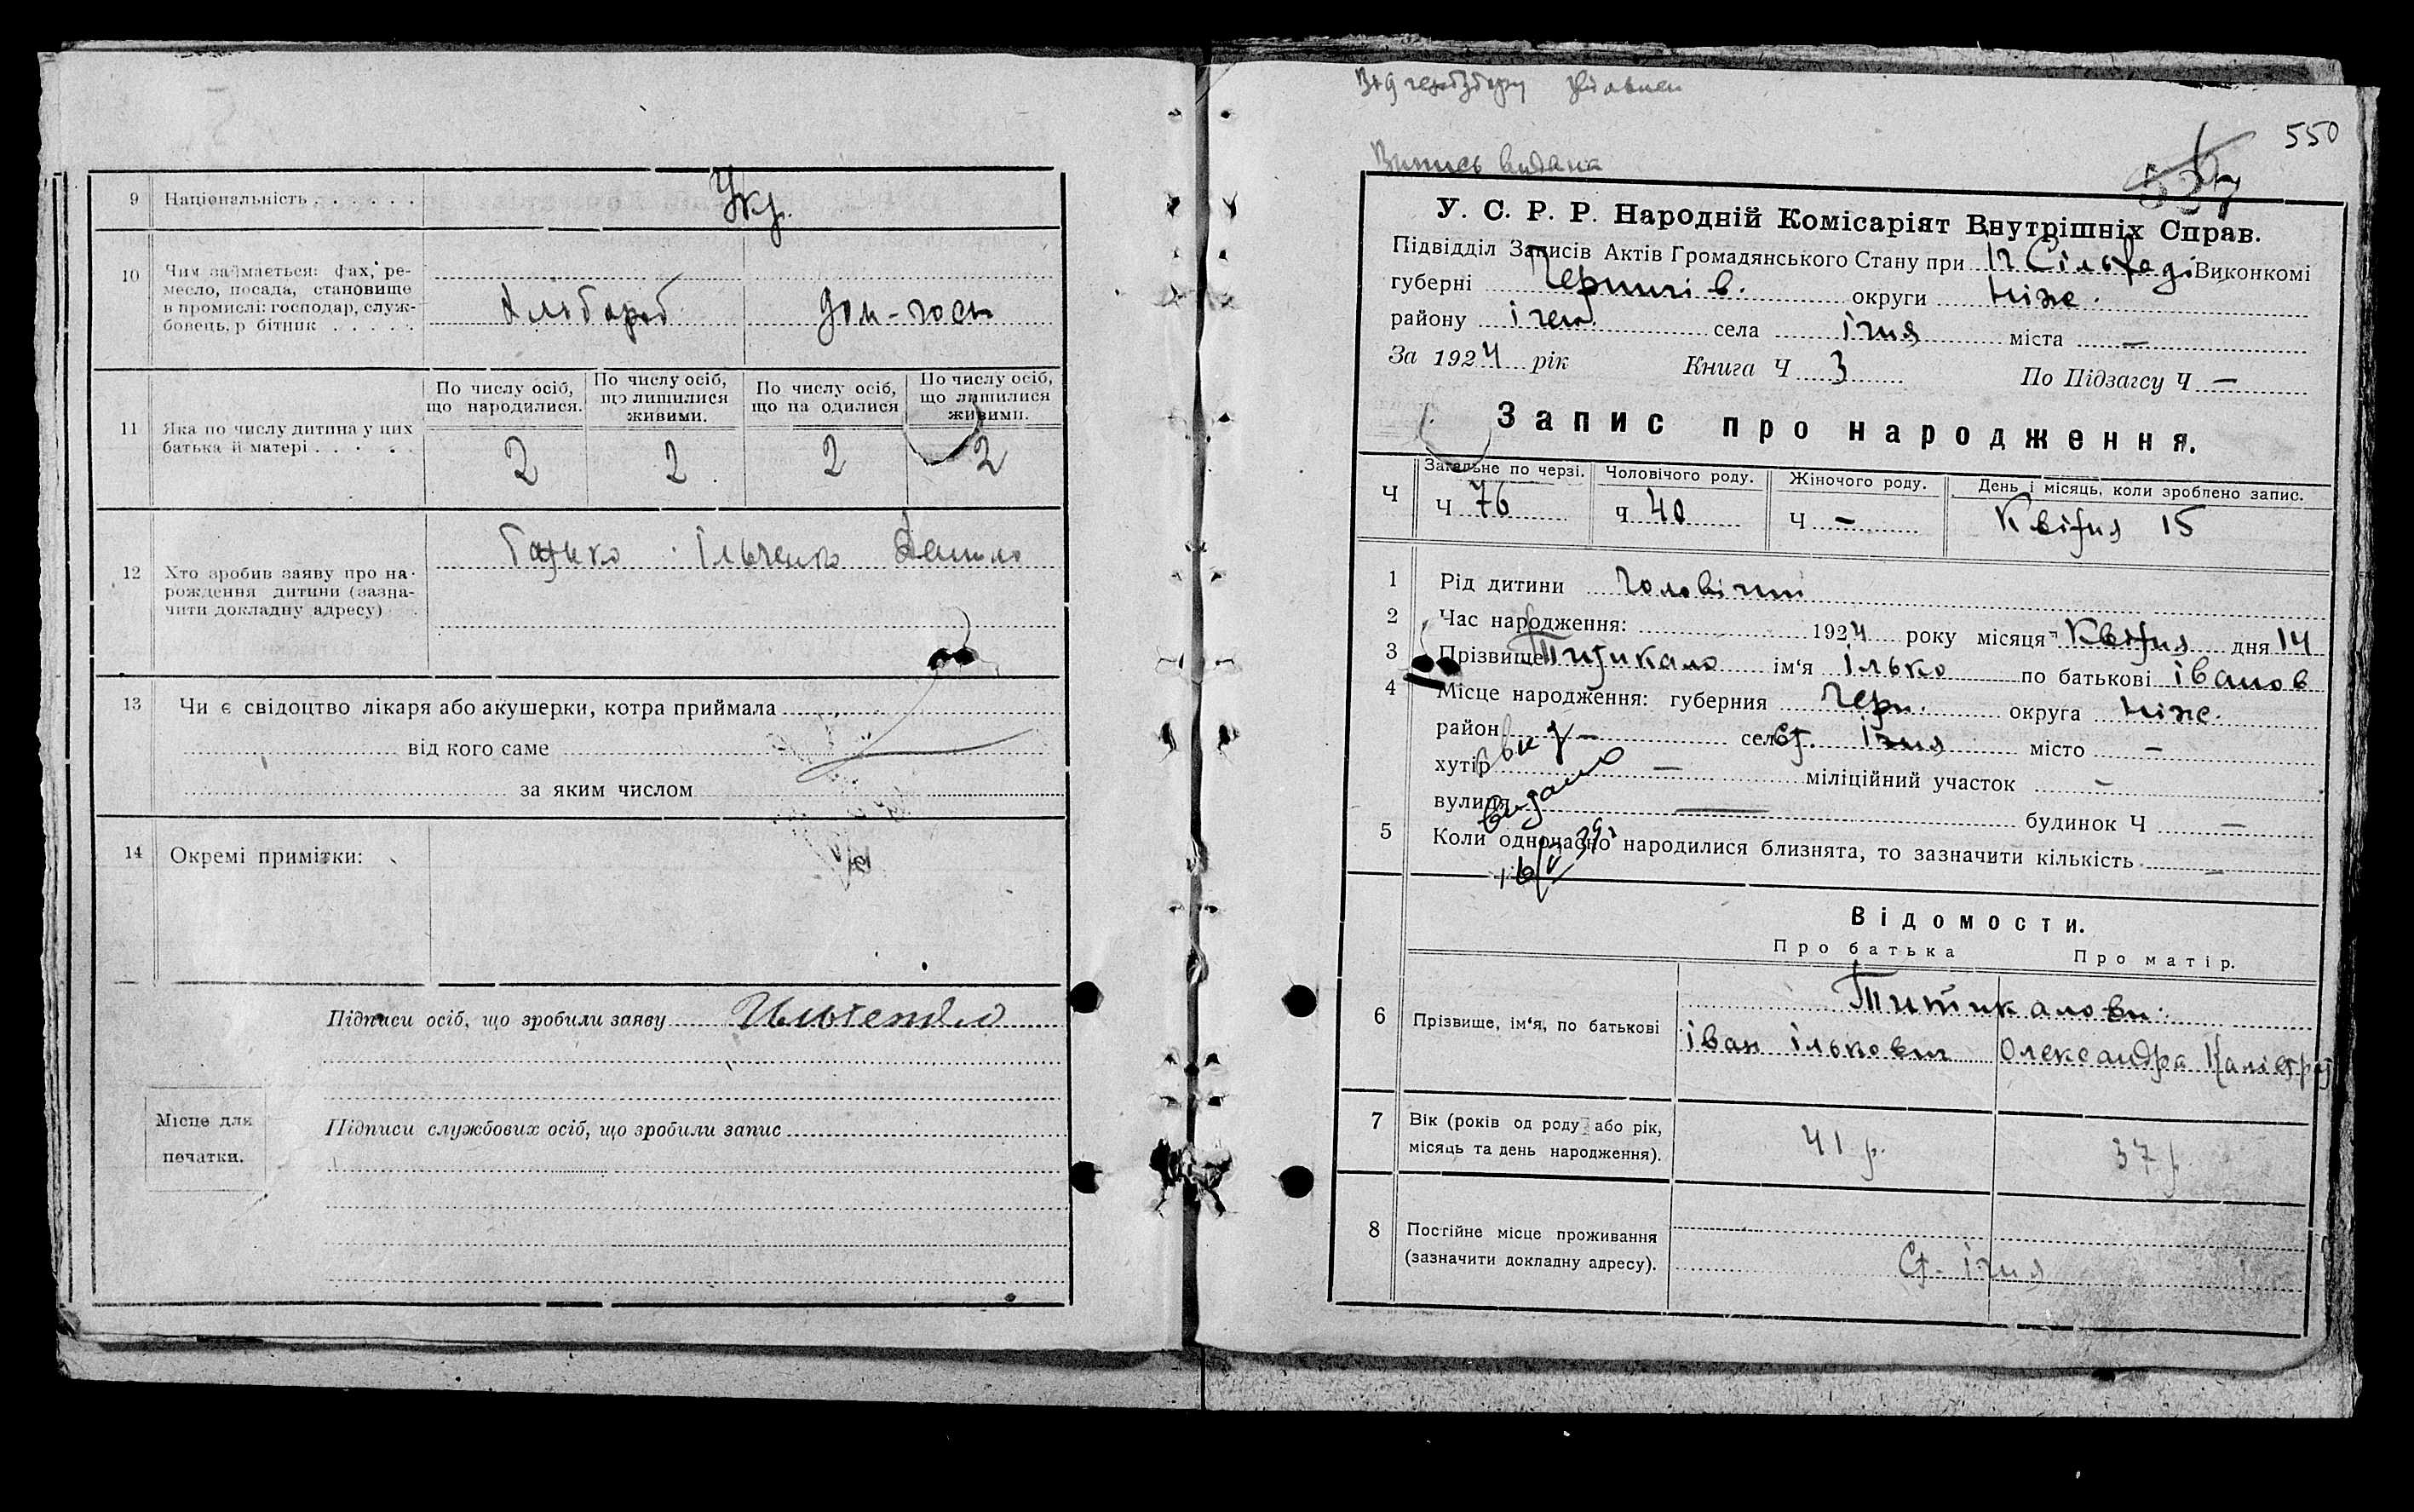 9 Національність . . . . . . Укр.
10 Чим займається: фах, ре-
месло, посада, становище
в промислі: господар, служ-
бовець, р бітник . . . . . Хлібороб дом-госп
11 Яка по числу дитина у цих
батька й матері . . . . . .
По числу осіб,
що народилися.
По числу осіб,
що лишилися
живими.
По числу осіб,
що на одилися
По числу осіб,
що лишилися
живими.
2 2 2 2
12 Хто зробив заяву про на-
рождення дитини (зазна-
чити докладну адресу)
Батько Ільченко
13 Чи є свідоцтво лікаря або акушерки, котра приймала
від кого саме
за яким числом
14 Окремі примітки:
Підписи осіб, що зробили заяву
Місце для
печатки.
Підписи службових осіб, що зробили запис
Випись видана
550
У. С. Р. Р. Народній Комісаріят Внутрішніх Справ.
Підвідділ Записів Актів Громадянського Стану при Сільраді Виконкомі
губерні Чернигів. округи Ніже.
району Ічен. села Ічня міста —
За 1924 рік Книга Ч 3 По Підзагсу Ч —
Запис про народження.
Ч Загальне по черзі. Чоловічого роду. Жіночого роду. День і місяць, коли зроблено запис.
Ч 76 Ч 40 Ч — Квітня 15
1 Рід дитини чоловічий
2 Час народження: 1924 року місяця Квітня дня 14
3 Прізвище Титикало ім‘я Ілько по батькові Іванов
4 Місце народження: губерния Черн. округа Ніже.
район — село Ст. Ічня місто —
хутір — міліційний участок —
вулиця — будинок Ч —
видано
5 Коли одночасно народилися близнята, то зазначити кількість —
Відомости.
Про батька Про матір.
6 Прізвище, ім‘я, по батькові
Титикалови
ІванІлькович Олександра Калістрат
7 Вік (років од роду або рік,
місяць та день народження). 41 р. 37 р.
8 Постійне місце проживання
(зазначити докладну адресу). Ст. Ічня